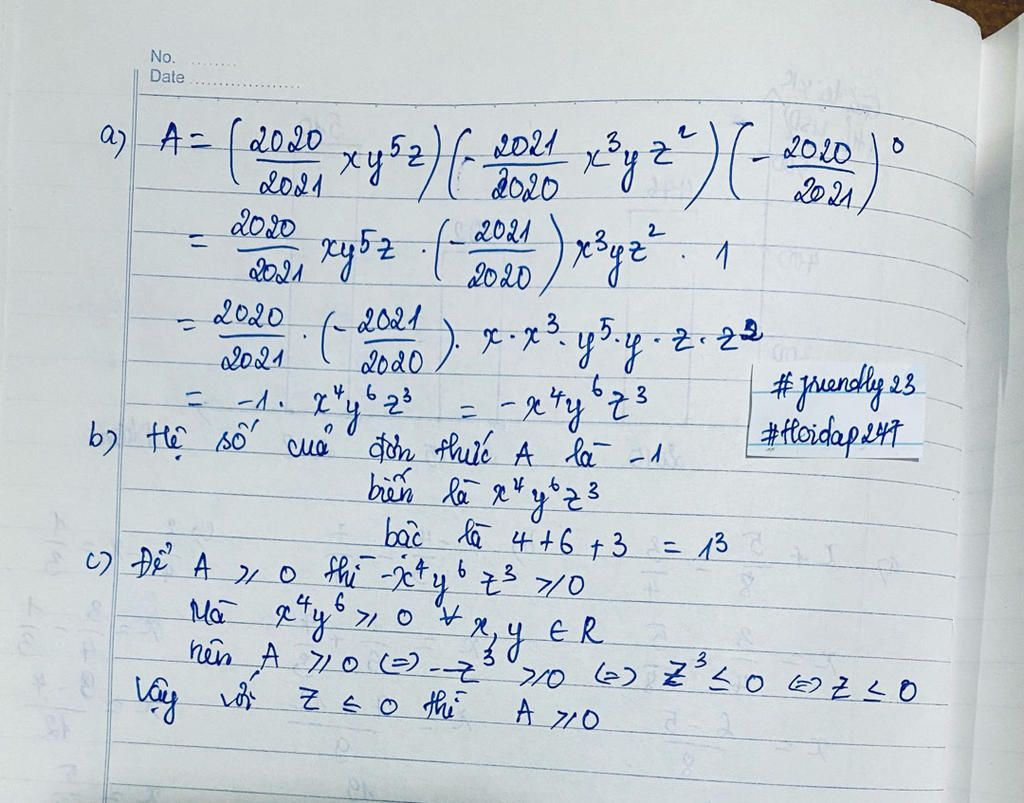 No. .........
Date ...................
a) A = (2020/2021 xy⁵z) (-2021/2020 x³yz²) (-2020/2021)⁰
= 2020/2021 xy⁵z . (-2021/2020) x³yz² . 1
= 2020/2021 . (-2021/2020) . x . x³ . y⁵ . y . z . z²
= -1 . x⁴y⁶z³ = -x⁴y⁶z³
#friendly23
#Hoidap247
b) Hệ số của đơn thức A là -1
biến là x⁴y⁶z³
bậc là 4+6+3 = 13
c) Để A ≥ 0 thì -x⁴y⁶z³ ≥ 0
Mà x⁴y⁶ ≥ 0 ∀ x,y ∈ R
nên A ≥ 0 (=) -z³ ≥ 0 (=) z³ ≤ 0 (=) z ≤ 0
Vậy với z ≤ 0 thì A ≥ 0